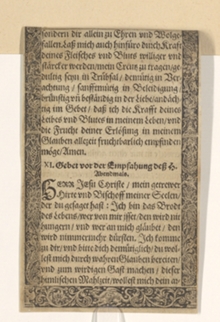 sondern dir allein zu Ehren vnd Wolge-
fallen. Laß mich auch hinfüro durch Krafft
deines Fleisches vnd Bluts williger vnd
stärcker werden / mein Creutz zu tragen / ge-
dultig seyn in Trübsal / demütig in Ver-
achtung / sanfftmütig in Beleidigung /
brünstig vñ beständig in der Liebe / andäch-
tig im Gebet / daß ich die Krafft deines
Leibes vnd Blutes in meinem Leben / vnd
die Frucht deiner Erlösung in meinem
Glauben allezeit fruchtbarlich empfinden
möge / Amen.
XI. Gebet vor der Empfahung deß H.
Abendmals.
HERR Jesu Christe / mein getrewer
Hirte vnd Bischoff meiner Seelen /
der du gesagt hast: Ich bin das Brodt
des Lebens / wer von mir isset / den wird nit
hungern / vnd wer an mich gläubet / den
wird nimmermehr dürsten. Ich komme
zu dir / vnd bitte dich demütiglich / du wol-
lest mich durch wahren Glauben bereiten /
vnd zum wirdigen Gast machen / dieser
himlischen Mahlzeit / wollest mich dein ar-